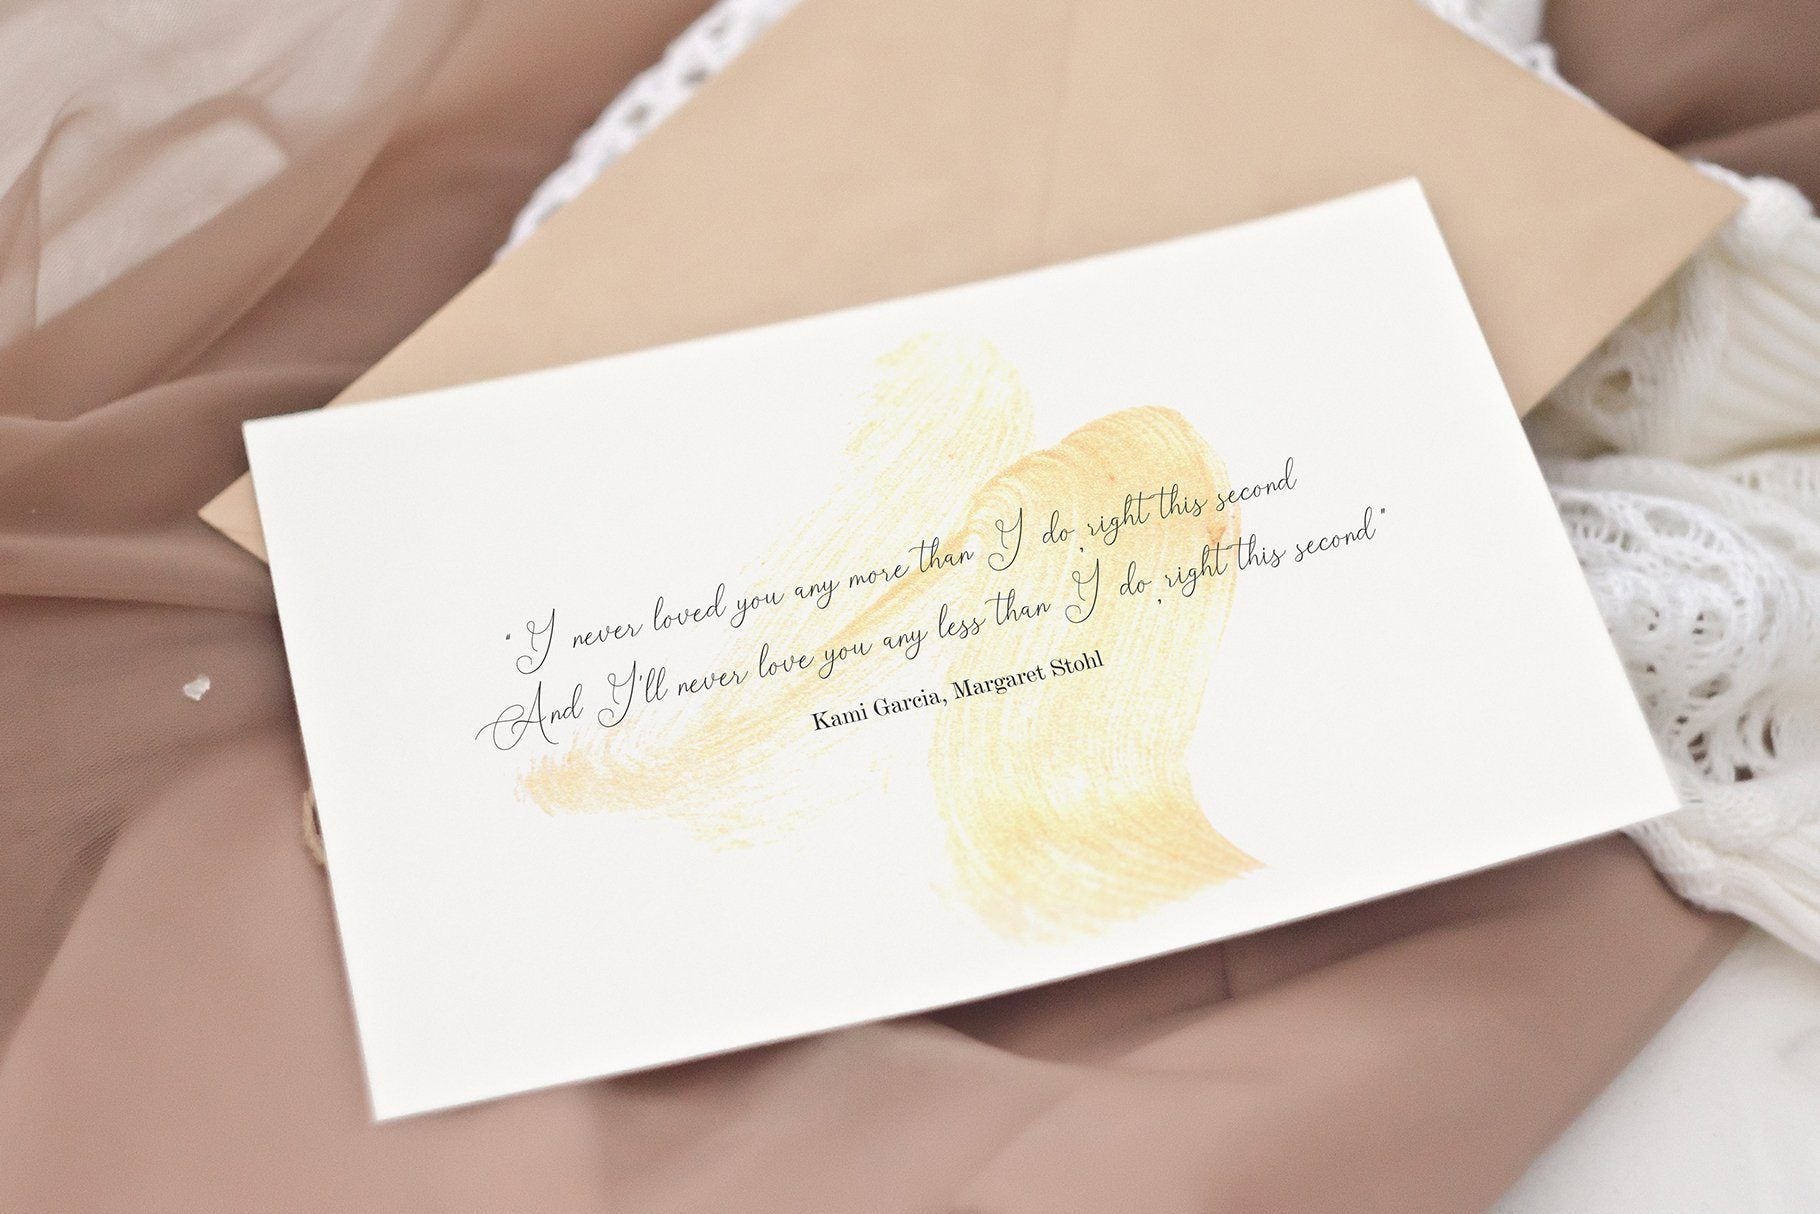 "I never loved you any more than I do, right this second
And I'll never love you any less than I do, right this second"
Kami Garcia, Margaret Stohl